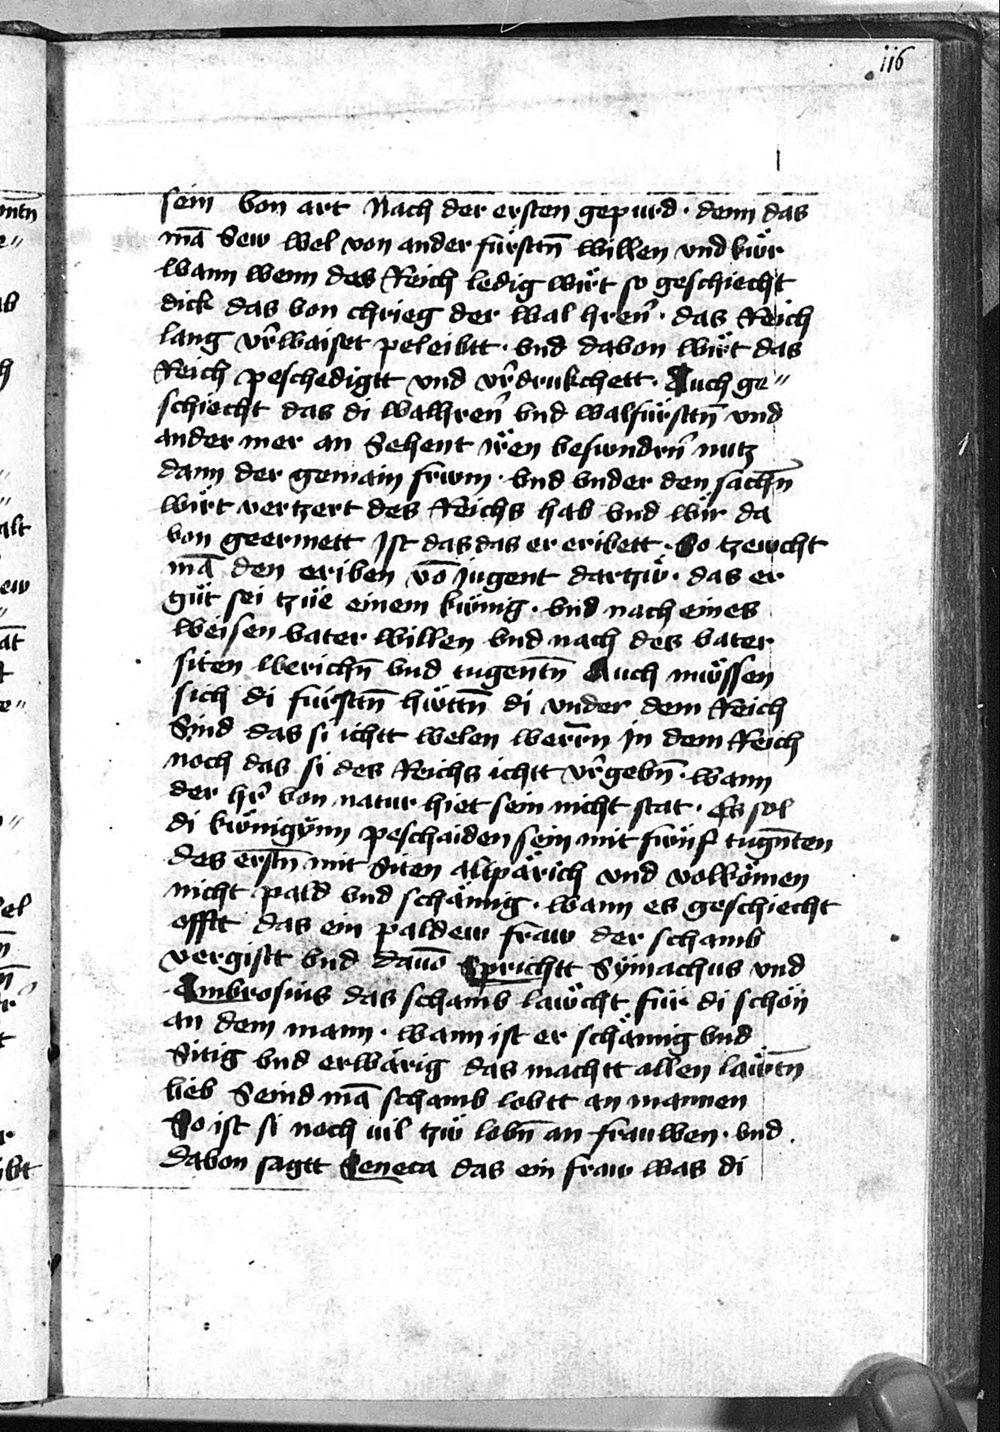 116
sein von art Nach der ersten gepurd · denn das
mā Sew wel von ander fürsttn̄ willen vnd kwͤr
wann wenn des Reich ledig wirt so geschiecht
dick das von chrieg der wal hren̄ · das Reich
lang vr̄waiset peleibtt · vnd davon wirt das
Reich peschedigtt vnd vr̄drukchett · Auch ge〃
schiecht das di walhren̄ vnd walfürsttn̄ vnd
ander mer an Sehent iren besundrn̄ nutz
dann der gemain frwm · vnd vnder den sachn̄
wirt vertzert des Reichs hab vnd wir da
von geermett Ist das das er eribett · So tzewcht
mā den eriben vō Jugent dartzwͤ · das er
guͤt sei tzuͤe einem kwͤnig · vnd nach eines
weisen vater willen vnd nach des vater
siten werichn̄ vnd tugentn̄ Auch mwͤssen
sich di fürsttn̄ hwͤttn̄ di vnder dem Reich
Sind das si ichtt welen werr̄n in dem Reich
noch das si des Reichs ichtt vr̄gebn̄ · wann
der hr̄ von natur hiet sein nicht stat · Es sol
di kwͤnigÿnn peschaiden sein mit fwͤnf tugn̄ten
des erstn̄ mit Siten altpärich vnd volkömen
nicht pald vnd schämig · wann es geschiecht
offtt das ein paldew fraw der schamb
vergistt vnd dauō Sprichtt Sÿmachus vnd
Ambrosius das schamb lawͤcht für di schön
an dem mann · wann ist er schämig vnd
Sitig vnd erwärig das machtt allen lawͤtn̄
lieb Seind mā schamb lobtt an mannen
So ist si noch uil tzwͤ lobn̄ an frauwen · vnd
davon sagtt Seneca das ein fraw was di